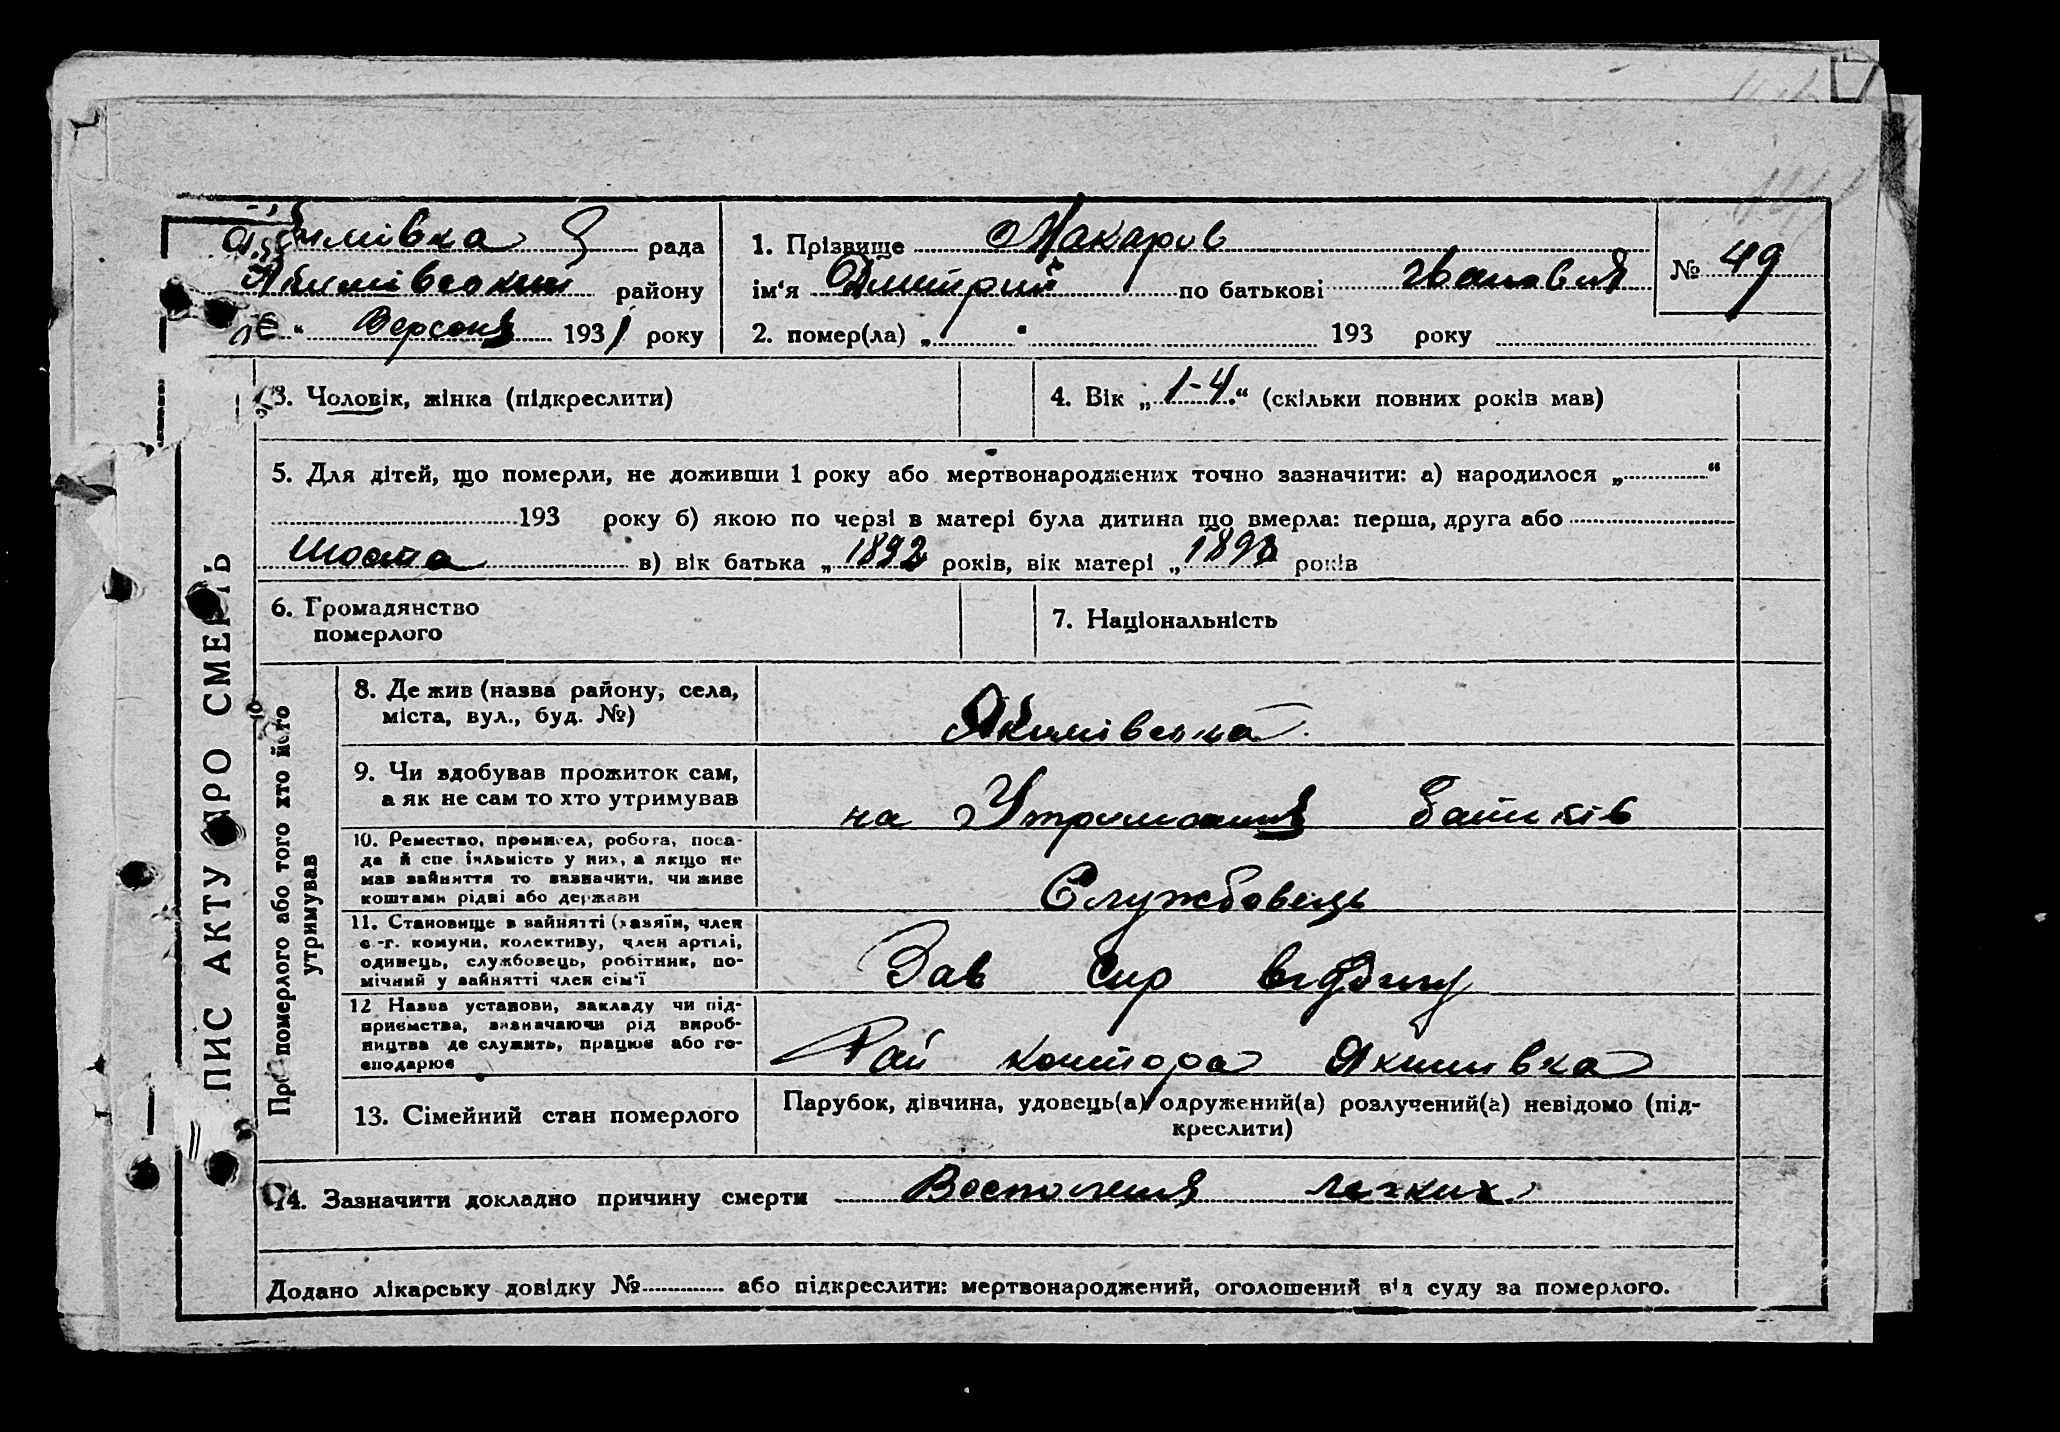 Якимівка рада
Якимівський району
“ Версеня 1931 року
1. Прізвище Макаров
ім‘я Дмитрий по батькові Іванович
№ 49
2. помер(ла) „ “ 193 року
3. Чоловік, жінка (підкреслити)
4. Вік „ 1-4 “ (скільки повних років мав)
5. Для дітей, що померли, не доживши 1 року або мертвонароджених точно зазначити: а) народилося „ “
193 року б) якою по черзі в матері була дитина що вмерла: перша, друга або
шоста в) вік батька „ 1892 років, вік матері „ 1893 років
6. Громадянство
померлого
7. Національність
ПИС АКТУ ПРО СМЕРТЬ
Про померлого або того хто його
утримував
8. Де жив (назва району, села,
міста, вул., буд. №)
Якимівська
9. Чи здобував прожиток сам,
а як не сам то хто утримував
на Утримання батьків
10. Ремество, промисел, робота, поса-
да й спеціяльність у них, а якщо не
мав зайняття то зазначити, чи живе
коштами рідні або держави
Службовець
11. Становище в зайнятті (хазяїн, член
с.-г. комуни, колективу, член артілі,
одинець, службовець, робітник, по-
мічний у зайнятті член сім‘ї
Зав сир відділу
12 Назва установи, закладу чи під-
приємства, зазначаючи рід вироб-
ництва де служить, працює або го-
сподарює
Рай контора Якимівка
13. Сімейний стан померлого
Парубок, дівчина, удовець(а) одружений(а) розлучений(а) невідомо (під-
креслити)
14. Зазначити докладно причину смерти Восполения легких
Додано лікарську довідку № або підкреслити: мертвонароджений, оголошений від суду за померлого.